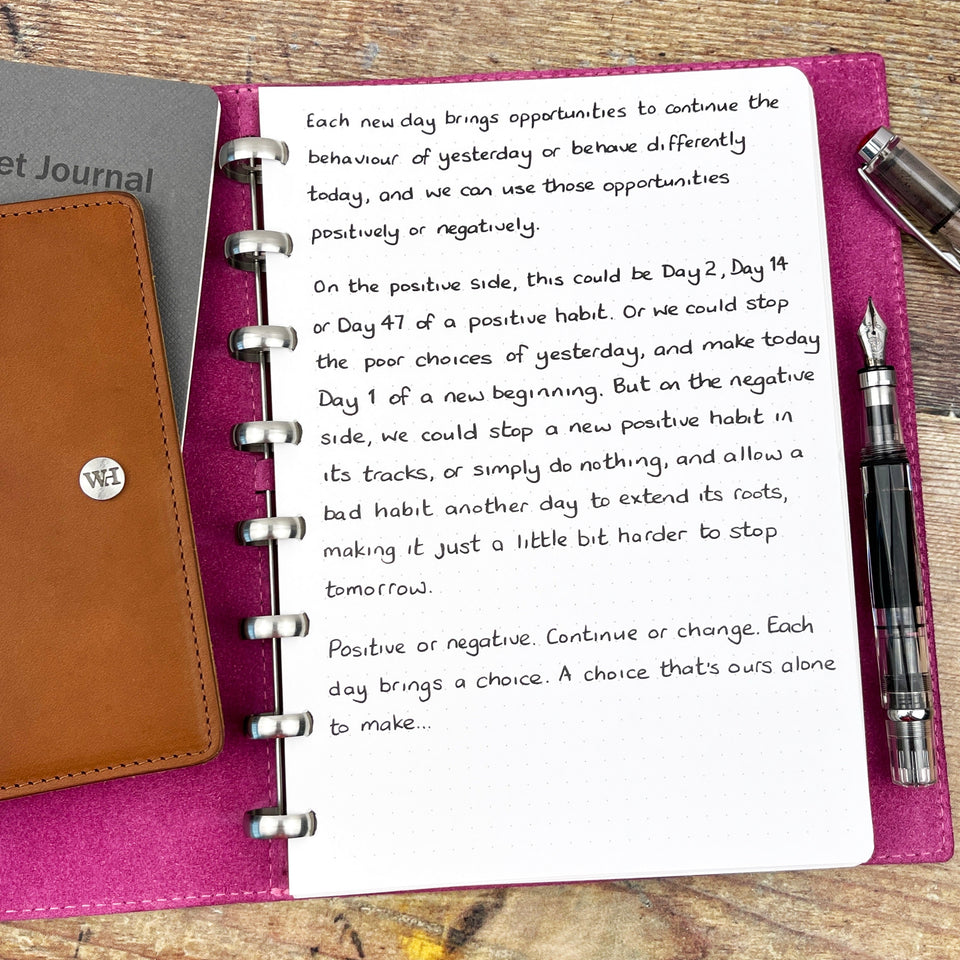 et Journal
WH
Each new day brings opportunities to continue the
behaviour of yesterday or behave differently
today, and we can use those opportunities
positively or negatively.
On the positive side, this could be Day 2, Day 14
or Day 47 of a positive habit. Or we could stop
the poor choices of yesterday, and make today
Day 1 of a new beginning. But on the negative
side, we could stop a new positive habit in
its tracks, or simply do nothing, and allow a
bad habit another day to extend its roots,
making it just a little bit harder to stop
tomorrow.
Positive or negative. Continue or change. Each
day brings a choice. A choice that's ours alone
to make...